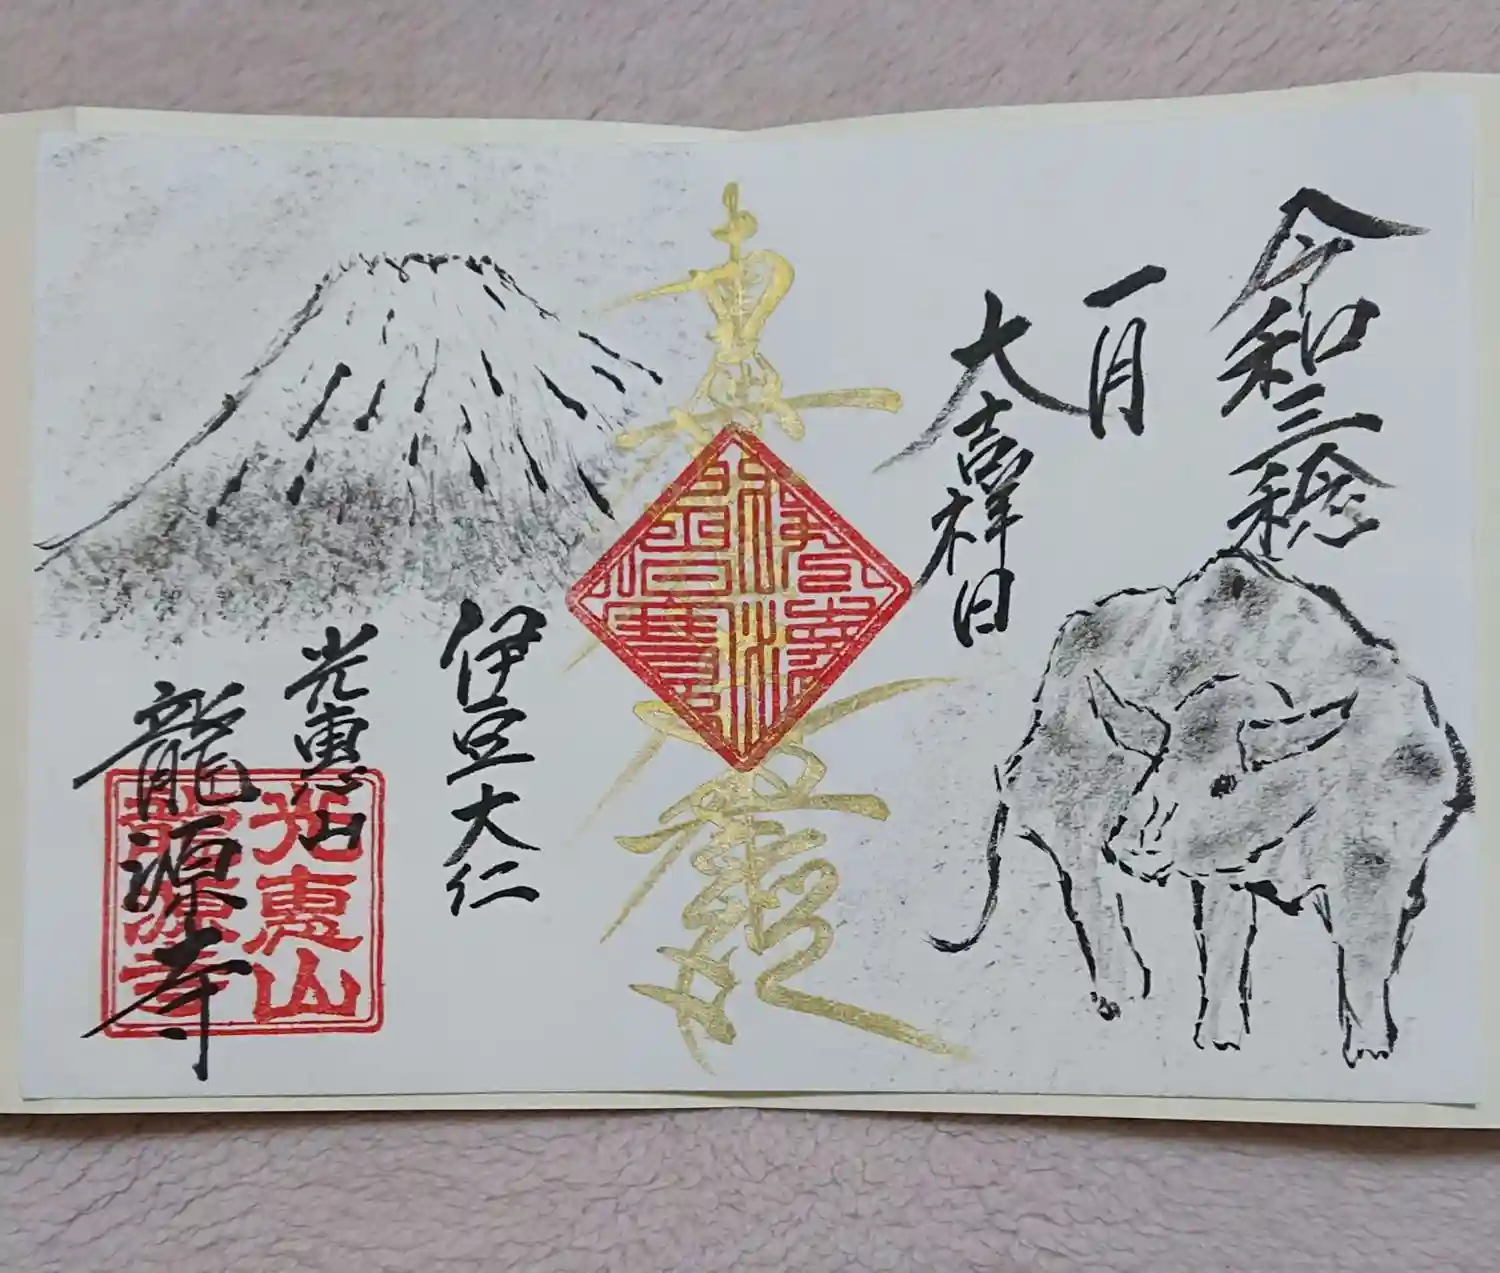 令和三稔
一月
大吉祥日
伊豆大仁
光恵山
龍源寺
光恵山
龍源寺